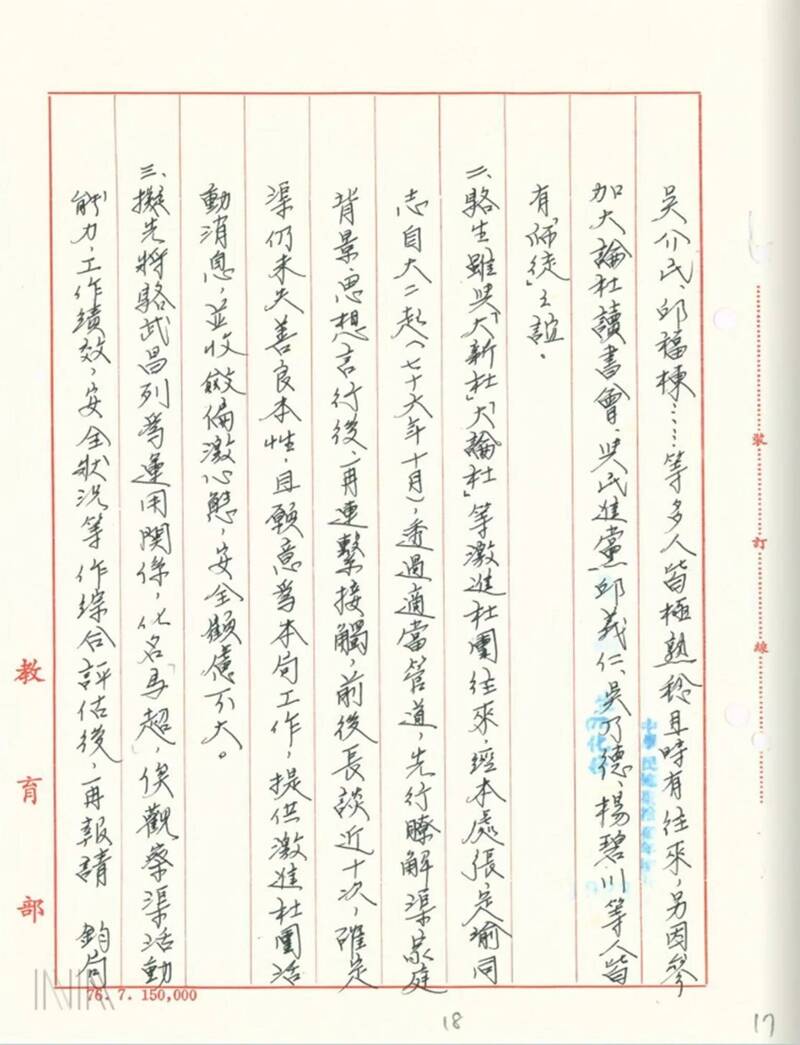 吳介民、邱福棟……等多人皆極熟稔且時有往來，另因參
加大論社讀書會，與民進黨邱義仁、吳乃德、楊碧川等人皆
有「師徒」之誼．
二、駱生雖與「大新社」「大論社」等激進社團往來，經本處張定瑜同
志自大二起（七十六年十月），透過適當管道，先行瞭解渠家庭
背景、思想言行後，再連繫接觸，前後長談近十次，確定
渠仍未失善良本性，且願意為本局工作，提供激進社團活
動消息，並收斂偏激心態，安全顧慮不大。
三、擬先將駱武昌列為運用關係，化名「馬超」，俟觀察渠活動
能力、工作績效，安全狀況等作綜合評估後，再報請　鈞局
裝
訂
線
教育部
76. 7. 150,000
18
17